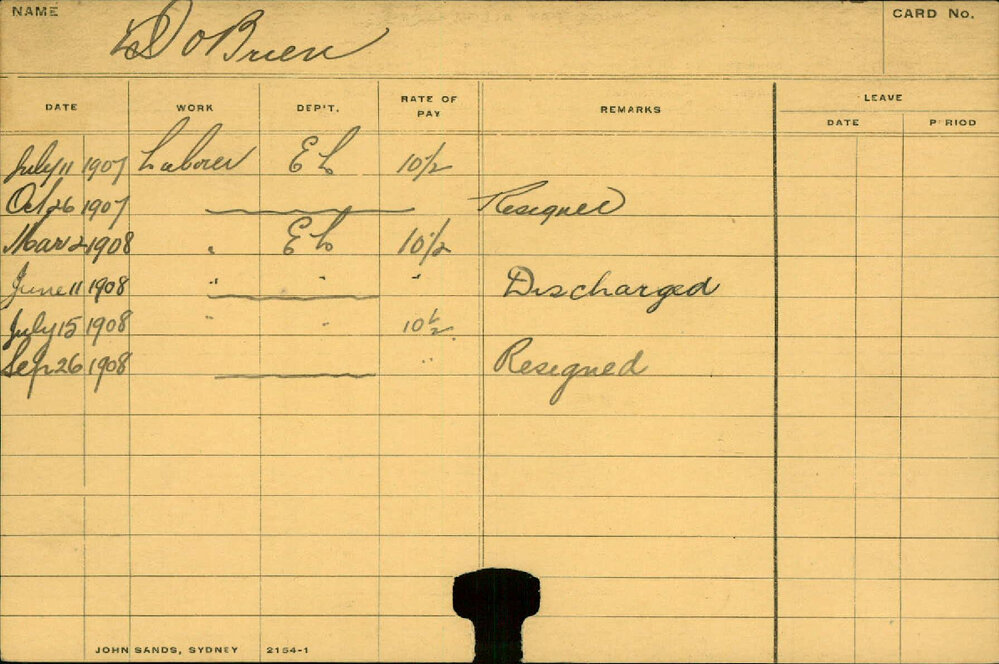 NAME
D O Brien
CARD No.
DATE WORK DEP'T. RATE OF PAY REMARKS LEAVE
DATE PERIOD
July 11 1907 Laborer E L 10½
Oct 26 1907 Resigned
Mar 2 1908 " E L 10½
June 11 1908 " " " Discharged
July 15 1908 " " 10½
Sep 26 1908 " Resigned
JOHN SANDS, SYDNEY 2154-1